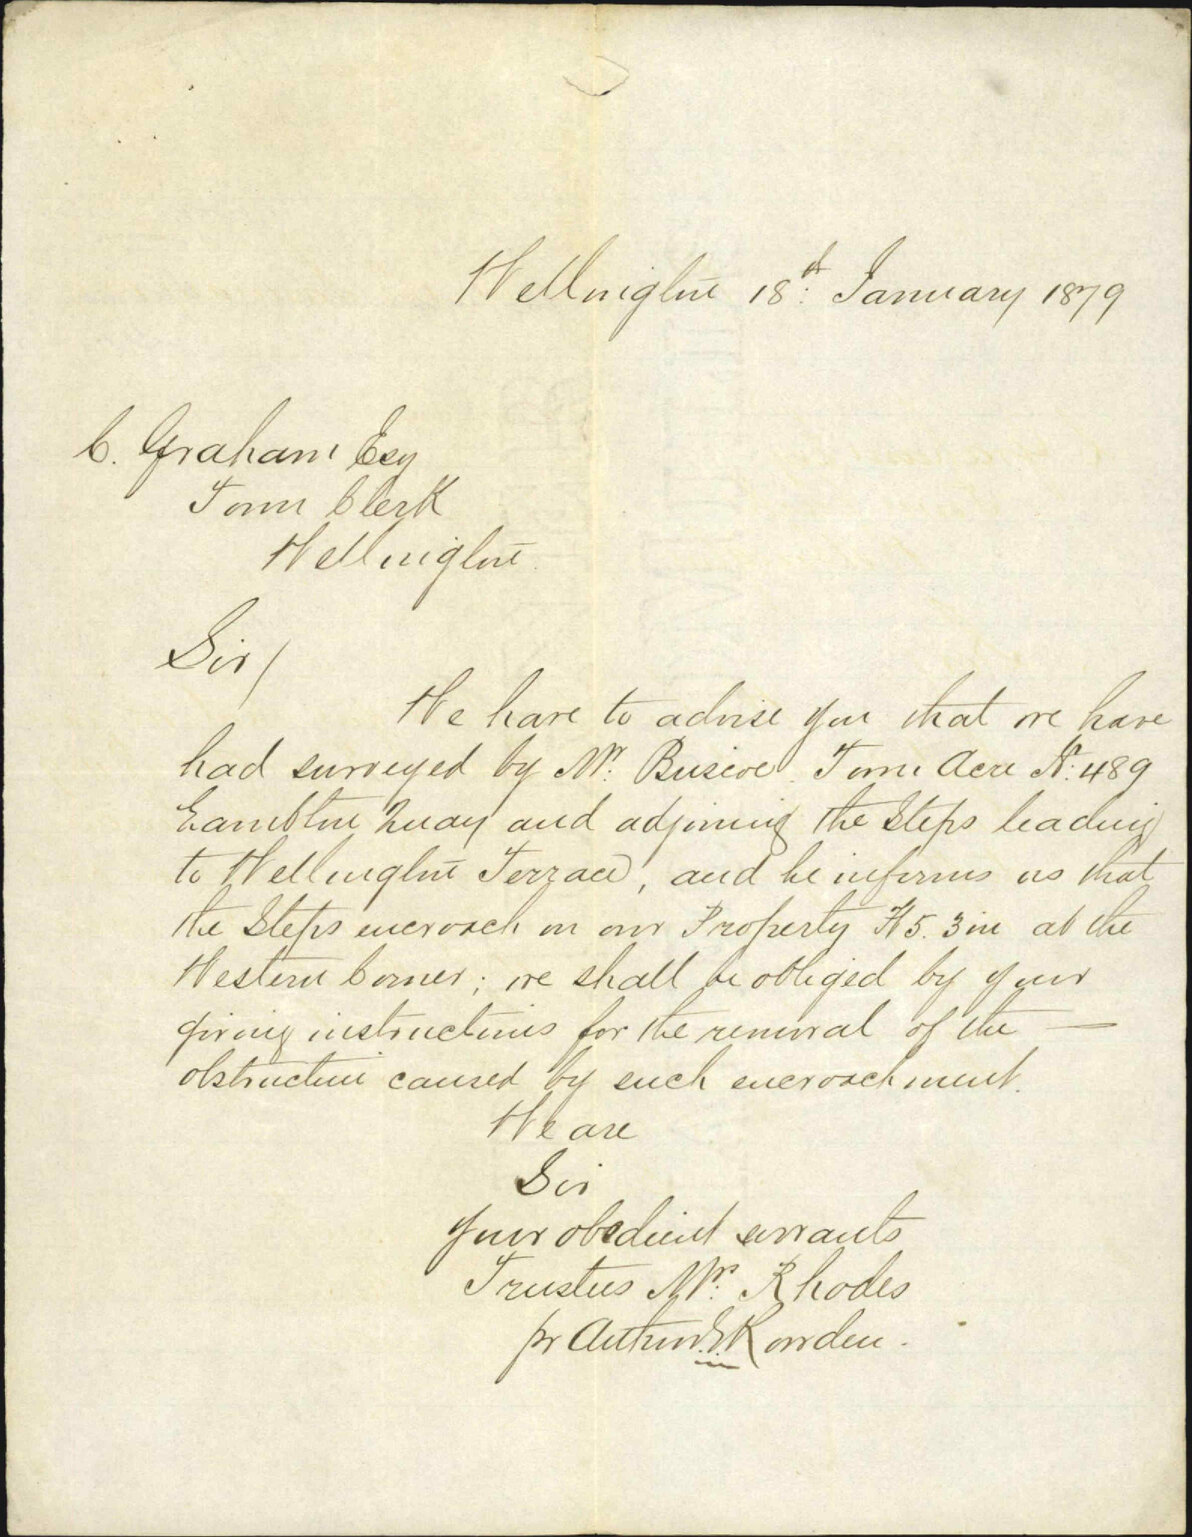 Wellington 18th: January 1879
C. Graham Esq
Town Clerk
Wellington.
Sir/
We have to advise you that we have
had surveyed by Mr: Briscoe Town Acre No: 489
Lambton Quay and adjoining the Steps leading
to Wellington Terrace, and he informs us that
the Steps encroach on our Property ft 5. 3 in at the
Western Corner; we shall be obliged by your
giving instructions for the removal of the —
obstruction caused by such encroachment.
We are
Sir
Your obedient servants
Trustees Mrs: Rhodes
pr Arthur E. Rowden.